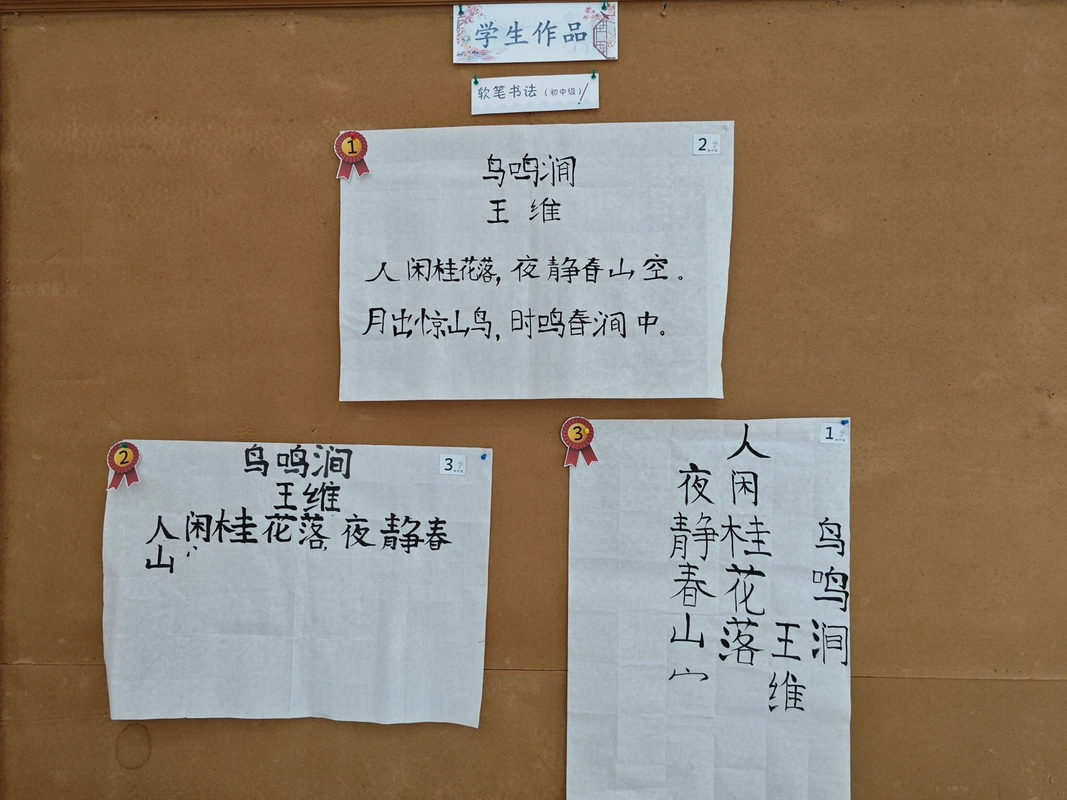 学生作品
软笔书法（初中级）
1
2
鸟鸣涧
王维
人闲桂花落，夜静春山空。
月出惊山鸟，时鸣春涧中。
2
3
鸟鸣涧
王维
人闲桂花落，夜静春
山
3
1
鸟鸣涧
王维
人闲桂花落
夜静春山宀